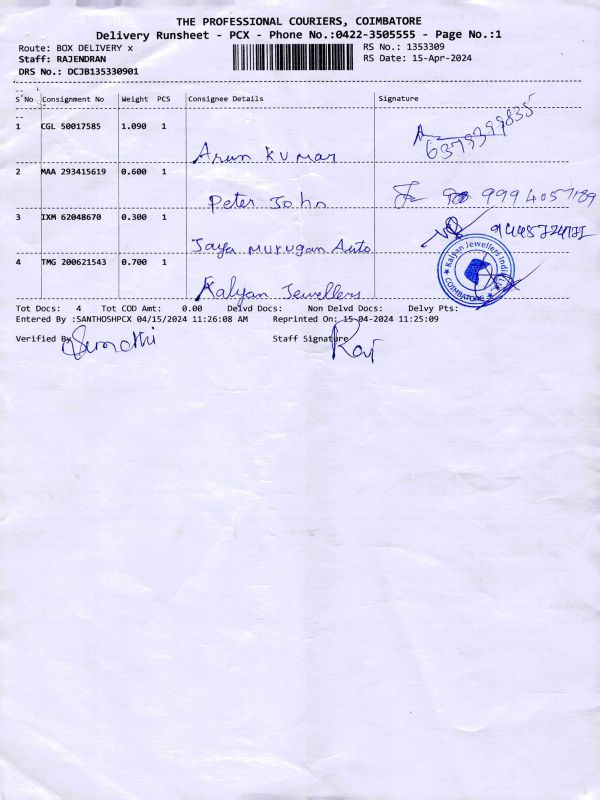 THE PROFESSIONAL COURIERS, COIMBATORE
Delivery Runsheet - PCX - Phone No.:0422-3505555 - Page No.:1
Route: BOX DELIVERY x RS No.: 1353309
Staff: RAJENDRAN RS Date: 15-Apr-2024
DRS No.: DCJB135330901
S'No Consignment No Weight PCS Consignee Details Signature
1 CGL 50017585 1.090 1
6379399835
Arun Kumar
2 MAA 293415619 0.600 1
Peter John 9994057189
3 IXM 62048670 0.300 1
Jaya Murugan Auto
4 TMG 200621543 0.700 1
Kalyan Jewellers
Kalyan Jewellers India
COIMBATORE
Tot Docs: 4 Tot COD Amt: 0.00 Delvd Docs: Non Delvd Docs: Delvy Pts:
Entered By :SANTHOSHPCX 04/15/2024 11:26:08 AM Reprinted On: 15-04-2024 11:25:09
Verified By Sumathi Staff Signature Raj